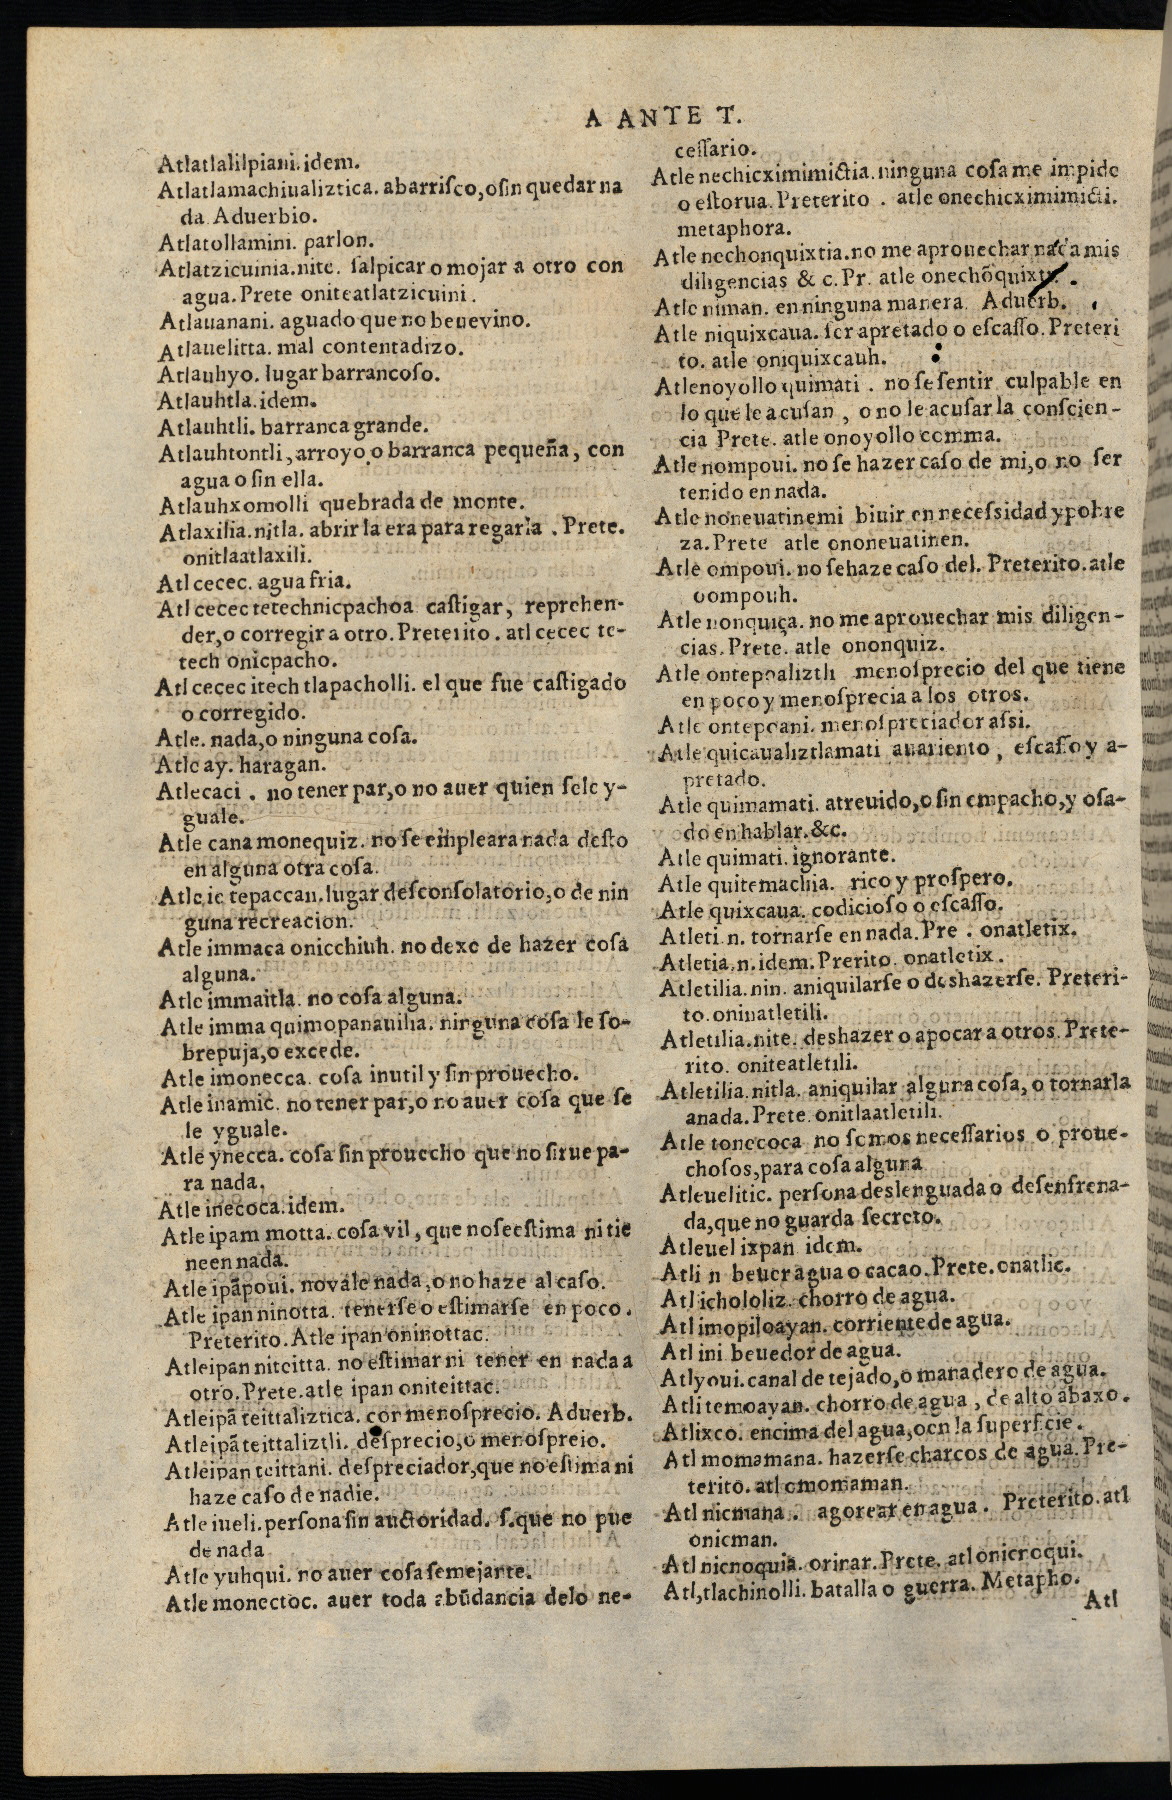 A ANTE T.
Atlatlalilpiani. idem.
Atlatlamachiualiztica. abarrisco, o sin quedar na
da. Aduerbio.
Atlatollamini. parlon.
Atlatzicuinia. nite. salpicar o mojar a otro con
agua. Prete oniteatlatzicuini.
Atlauanani. aguado que no beue vino.
Atlauelitta. mal contentadizo.
Atlauhyo. lugar barrancoso.
Atlauhtla. idem.
Atlauhtli. barranca grande.
Atlauhtontli, arroyo, o barranca pequeña, con
agua o sin ella.
Atlauhxomolli quebrada de monte.
Atlaxilia. nitla. abrir la era para regarla. Prete.
onitlaatlaxili.
Atl cecec. agua fria.
Atl cecec tetechnicpachoa castigar, reprehen-
der, o corregir a otro. Preterito. atl cecec te-
tech onicpacho.
Atl cecec itech tlapacholli. el que fue castigado
o corregido.
Atle. nada, o ninguna cosa.
Atle ay. haragan.
Atlecaci. no tener par, o no auer quien sele y-
guale.
Atle cana monequiz. no se empleara nada desto
en alguna otra cosa.
Atle ic tepaccan. lugar desconsolatorio, o de nin
guna recreacion.
Atle immaca onicchiuh. no dexe de hazer cosa
alguna.
Atle immaitla. no cosa alguna.
Atle imma quimopanauilia. ninguna cosa le so-
brepuja, o excede.
Atle imonecca. cosa inutil y sin prouecho.
Atle inamic. no tener par, o no auer cosa que se
le yguale.
Atle ynecca. cosa sin prouecho que no sirue pa-
ra nada.
Atle inecoca. idem.
Atle ipam motta. cosa vil, que no se estima ni tie
ne en nada.
Atle ipãpoui. no vale nada, o no haze al caso.
Atle ipan ninotta. tenerse o estimarse en poco.
Preterito. Atle ipan oninottac.
Atleipan niteitta. no estimar ni tener en nada a
otro. Prete. atle ipan oniteittac.
Atleipã teittaliztica. con menosprecio. Aduerb.
Atleipã teittaliztli. desprecio, o menospreio.
Atleipan teittani. despreciador, que no estima ni
haze caso de nadie.
Atle iueli. persona sin auctoridad. s. que no pue
de nada
Atle yuhqui. no auer cosa semejante.
Atle monectoc. auer toda abũdancia delo ne-
cessario.
Atle nechicximimictia. ninguna cosa me impide
o estorua. Preterito. atle onechicximimicti.
metaphora.
Atle nechonquixtia. no me aprouechar nada mis
diligencias & c. Pr. atle onechõquixti.
Atle niman. en ninguna manera. Aduerb.
Atle niquixcaua. ser apretado o escasso. Preteri
to. atle oniquixcauh.
Atlenoyollo quimati. no se sentir culpable en
lo que le acusan, o no le acusar la conscien-
cia Prete. atle onoyollo comma.
Atle nompoui. no se hazer caso de mi, o no ser
tenido en nada.
Atle noneuatinemi biuir en necessidad y pobre
za. Prete atle ononeuatinen.
Atle ompoui. no se haze caso del. Preterito. atle
oompouh.
Atle nonquiça. no me aprouechar mis diligen-
cias. Prete. atle ononquiz.
Atle ontepoaliztli menosprecio del que tiene
en poco y menosprecia a los otros.
Atle ontepoani. menospreciador assi.
Atle quicaualiztlamati auariento, escasso y a-
pretado.
Atle quimamati. atreuido, o sin empacho, y osa-
do en hablar. &c.
Atle quimati. ignorante.
Atle quitemachia. rico y prospero.
Atle quixcaua. codicioso o escasso.
Atleti. n. tornarse en nada. Pre. onatletix.
Atletia. n. idem. Prerito. onatletix.
Atletilia. nin. aniquilarse o deshazerse. Preteri-
to. oninatletili.
Atletilia. nite. deshazer o apocar a otros. Prete-
rito. oniteatletili.
Atletilia. nitla. aniquilar alguna cosa, o tornarla
anada. Prete. onitlaatletili.
Atle tonecoca no somos necessarios o proue-
chosos, para cosa alguna
Atleuelitic. persona deslenguada o desenfrena-
da, que no guarda secreto.
Atleuel ixpan idem.
Atli n beuer agua o cacao. Prete. onatlic.
Atl ichololiz. chorro de agua.
Atl imopiloayan. corriente de agua.
Atl ini beuedor de agua.
Atlyoui. canal de tejado, o manadero de agua.
Atli temoayan. chorro de agua, de alto abaxo.
Atlixco. encima del agua, oen la superficie.
Atl momamana. hazerse charcos de agua. Pre-
terito. atl omomaman.
Atl nicmana. agorear en agua. Preterito. atl
onicman.
Atl nicnoquia. orinar. Prete. atl onicnoqui.
Atl, tlachinolli. batalla o guerra. Metapho.
Atl